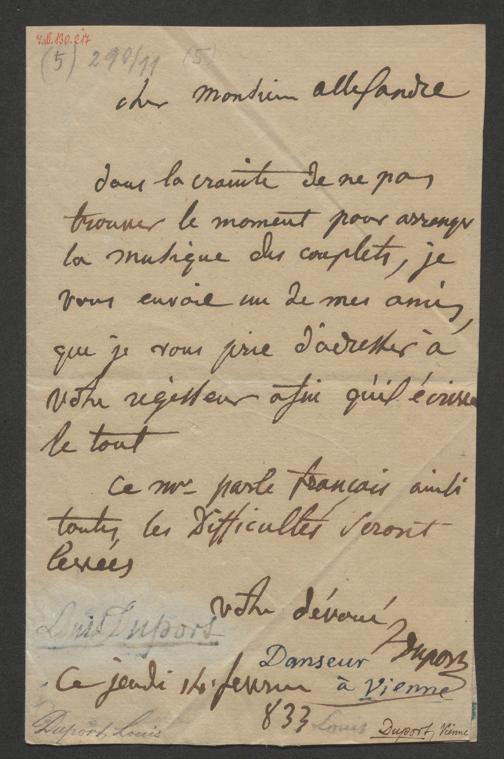 I.N. 130.217
(5) 290/11 (5)
cher monsieur allexandre
dans la crainte de ne pas
trouver le moment pour arranger
la musique des couplets, je
vous envoie un de mes amis,
que je vous prie d'adresser à
votre régisseur afin qu'il écrive
le tout
Ce mr parle français ainsi
toutes les difficultés seront
levées
votre dévoué
Louis Duport
Duport
Danseur
Ce jeudi 14 fevrier à Vienne
833
Duport, Louis
Louis
Duport, Vienne